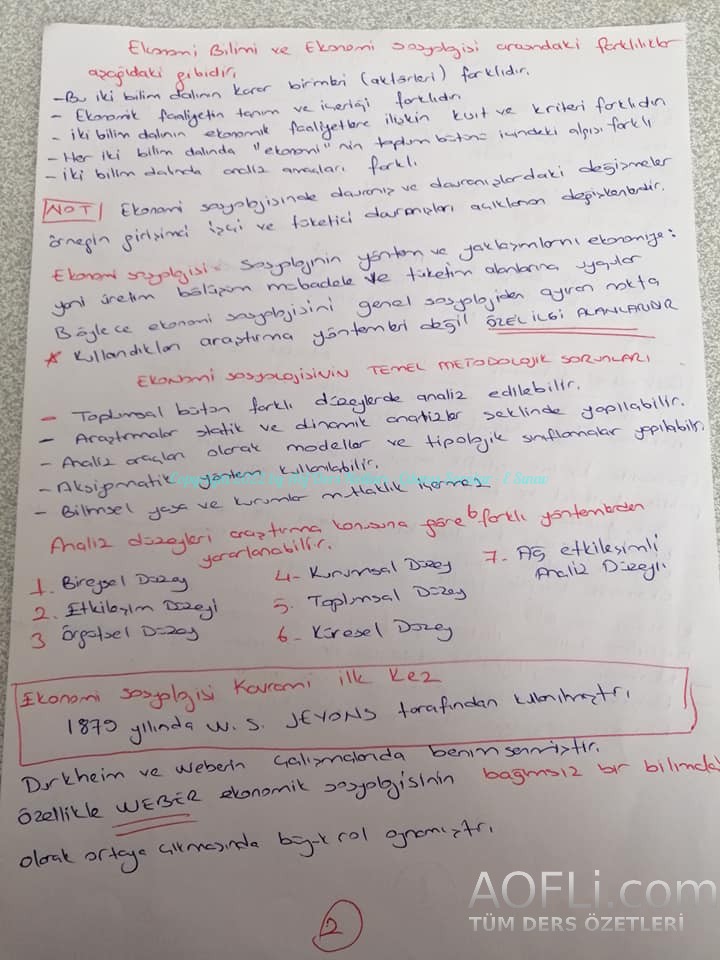 Ekonomi Bilimi ve Ekonomi sosyolojisi arasındaki farklılıklar
aşağıdaki gibidir.
- Bu iki bilim dalının karar birimleri (aktörleri) farklıdır.
- Ekonomik faaliyetin tanım ve içeriği farklıdır.
- iki bilim dalının ekonomik faaliyetlere ilişkin kısıt ve kriteri farklıdır
- Her iki bilim dalında "ekonomi"nin toplum bütünü içindeki algısı farklı
- iki bilim dalında analiz amaçları farklı.
NOT/ Ekonomi sosyolojisinde davranış ve davranışlardaki değişmeler
örneğin girişimci işçi ve tüketici davranışları açıklanan değişkenlerdir.
Ekonomi sosyolojisi = Sosyolojinin yöntem ve yaklaşımlarını ekonomiye;
yani üretim bölüşüm mübadele ve tüketim alanlarına uygular
Böylece ekonomi sosyolojisini genel sosyolojiden ayıran nokta
* Kullandıkları araştırma yöntemleri değil ÖZEL İLGİ ALANLARIDIR
EKONOMİ SOSYOLOJİSİNİN TEMEL METODOLOJİK SORUNLARI
- Toplumsal bütün farklı düzeylerde analiz edilebilir.
- Araştırmalar statik ve dinamik analizler şeklinde yapılabilir.
- Analiz araçları olarak modeller ve tipolojik sınıflamalar yapılabilir
- Aksiyomatik yöntem kullanılabilir.
- Bilimsel yasa ve kurumlar mutlaklık içermez
Analiz düzeyleri araştırma konusuna göre 6 farklı yöntemden
yararlanabilir.
1. Bireysel Düzey
2. Etkileşim Düzeyi
3 Örgütsel Düzey
4- Kurumsal Düzey
5. Toplumsal Düzey
6- Küresel Düzey
7. Ağ etkileşimli
Analiz Düzeyi.
Ekonomi Sosyolojisi Kavramı ilk kez
1879 yılında W. S. JEVONS tarafından kullanılmıştır.
Durkheim ve Weberin çalışmalarında benimsenmiştir.
Özellikle WEBER ekonomik sosyolojisinin bağımsız bir bilimdalı
olarak ortaya çıkmasında büyük rol oynamıştır.
2
AOFLi.com
TÜM DERS ÖZETLERİ